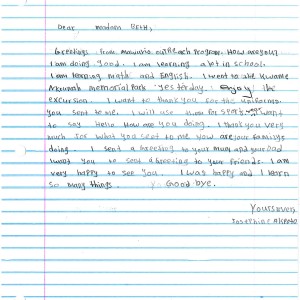 Dear madam BETH,
Greetings from mawuvio outreach program. How are you?
I am doing good. I am learning alot in school.
I am learning math and English. I went to the Kwame
Nkrumah memorial Park yesterday. I enjoy the
excursion. I want to thank you for the uniforms
you sent to me. I will use them for sport. I want
to say Hello How are you doing. I thank you very
much for what you sent to me Now are your family
doing. I sent a Greeting to your mum and your Dad
I want you to send a Greeting to your friends. I am
very happy to see you. I was happy and I learn
so many things. Good bye.
Yours ever
Josephine